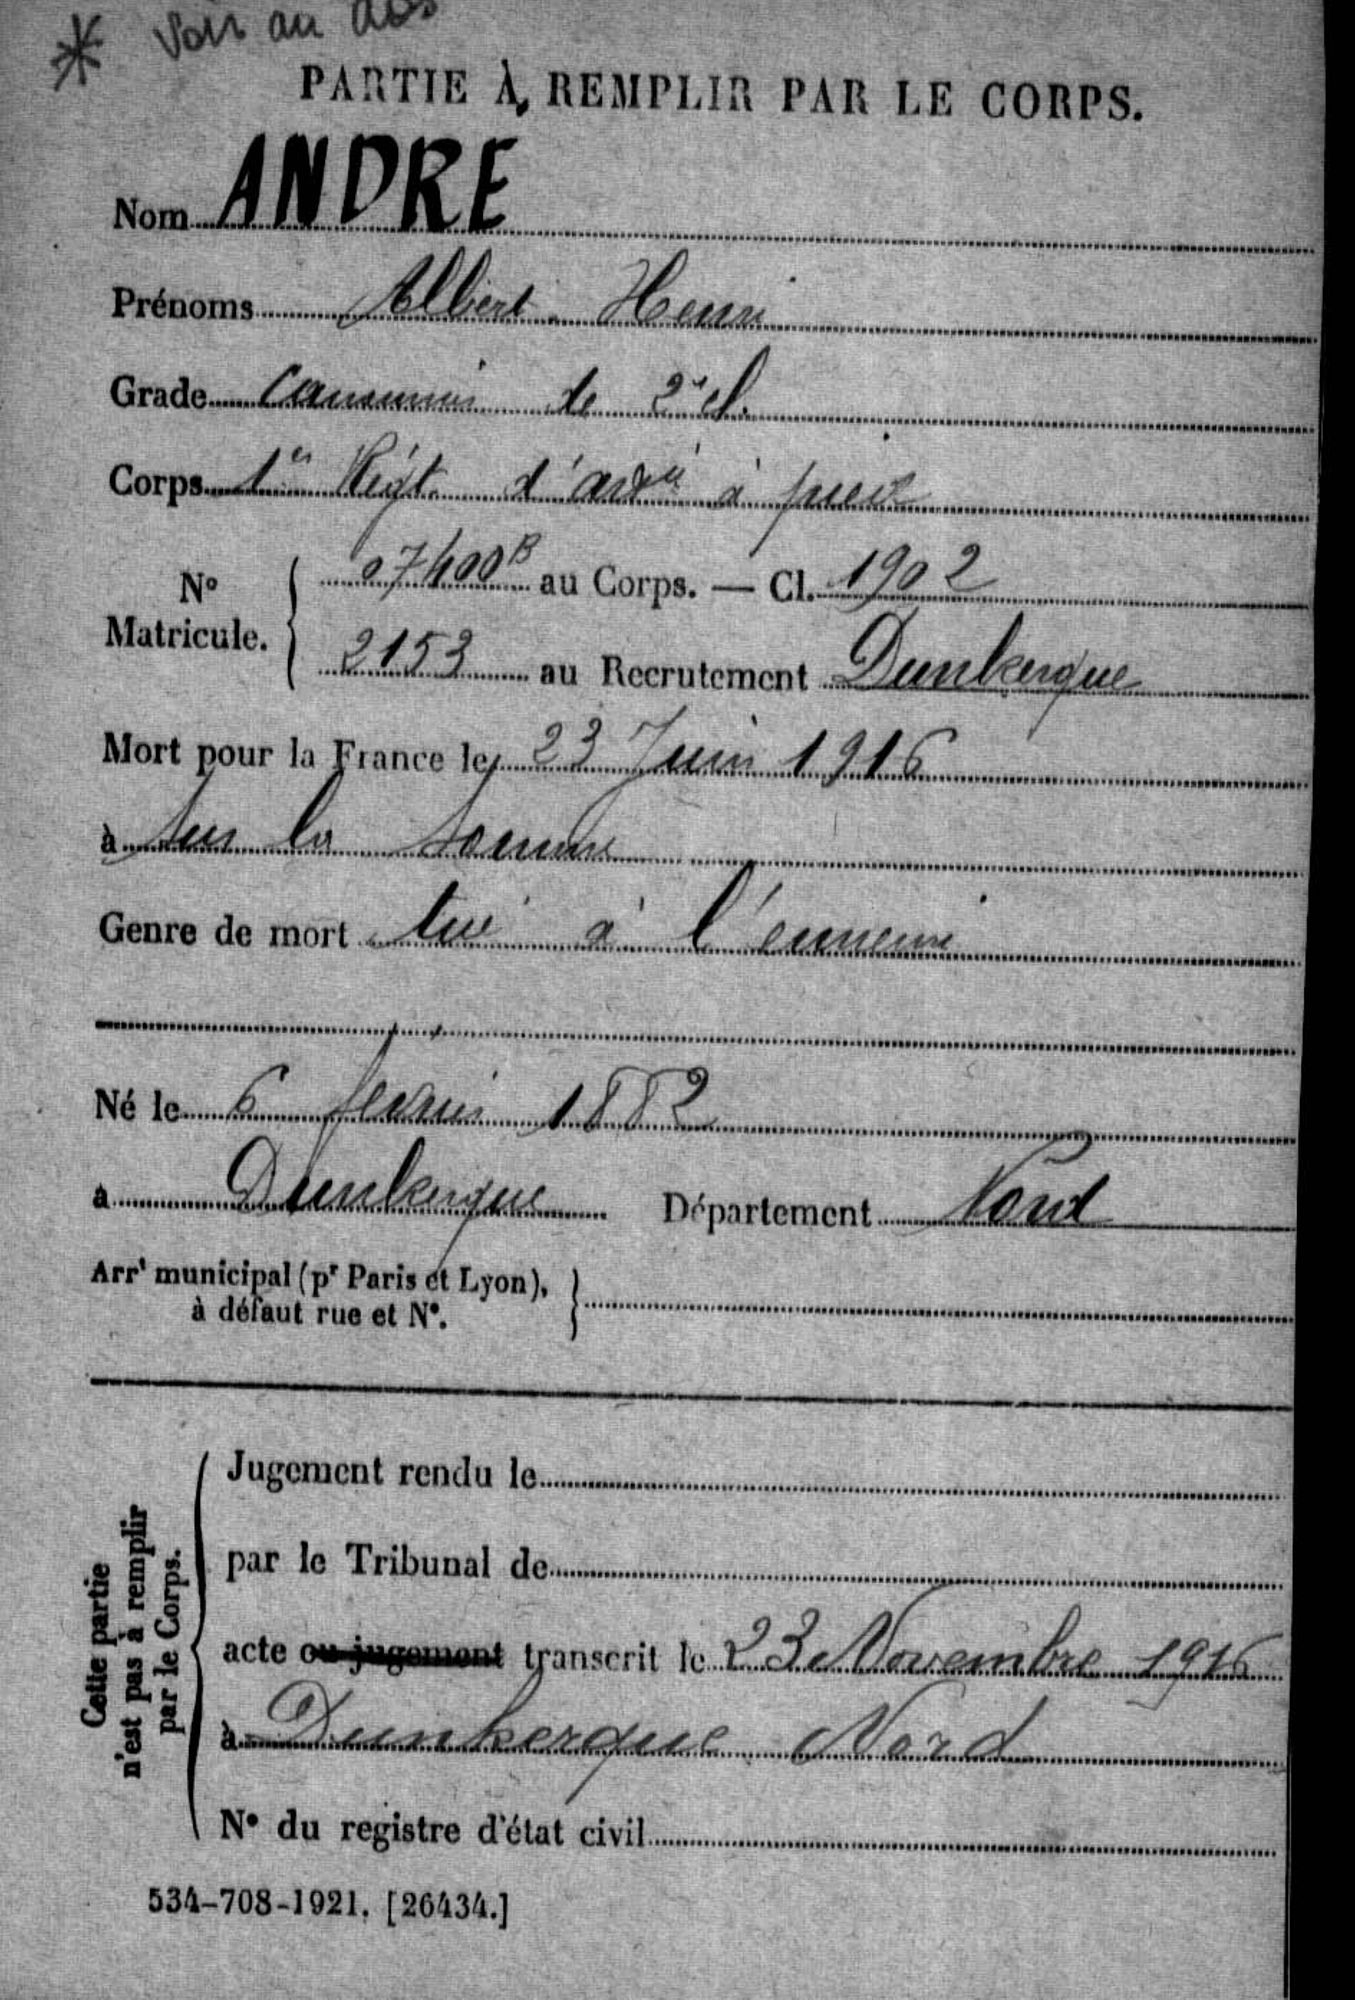 * Voir au dos
PARTIE À REMPLIR PAR LE CORPS.
Nom ANDRE
Prénoms Albert Henri
Grade Canonnier de 2e cl.
Corps 1er Régt d'artie à pied
No Matricule. { 07400B au Corps. — Cl. 1902
2153 au Recrutement Dunkerque
Mort pour la France le 23 Juin 1916
à Sur la Somme
Genre de mort tué à l'ennemi
Né le 6 février 1882
à Dunkerque Département Nord
Arrt municipal (pr Paris et Lyon),
à défaut rue et No. }
Cette partie
n'est pas à remplir
par le Corps.
Jugement rendu le
par le Tribunal de
acte ou jugement transcrit le 23 Novembre 1916
à Dunkerque Nord
No du registre d'état civil
534-708-1921. [26434.]